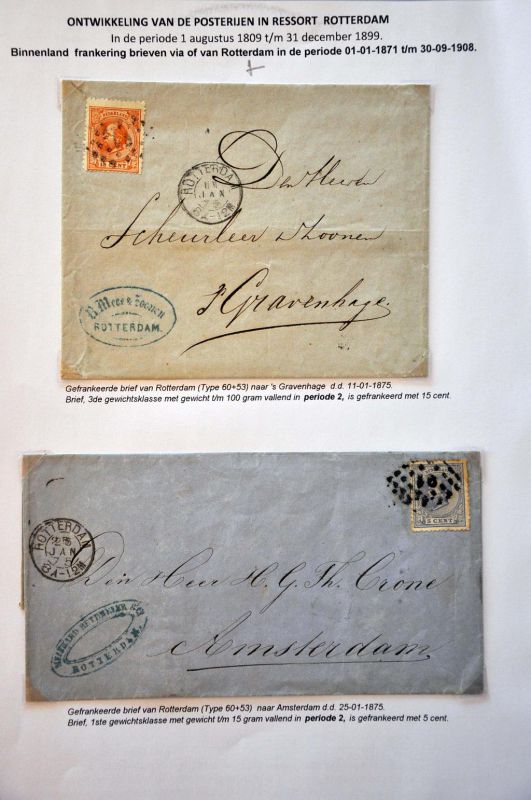 ONTWIKKELING VAN DE POSTERIJEN IN RESSORT ROTTERDAM
In de periode 1 augustus 1809 t/m 31 december 1899.
Binnenland frankering brieven via of van Rotterdam in de periode 01-01-1871 t/m 30-09-1908.
NEDERLAND
15 CENT
ROTTERDAM
11
JAN
75
8A-12M
Den Heeren
Scheurleer & Zoonen
's Gravenhage.
R. Mees & Zoonen
ROTTERDAM.
Gefrankeerde brief van Rotterdam (Type 60+53) naar 's Gravenhage d.d. 11-01-1875.
Brief, 3de gewichtsklasse met gewicht t/m 100 gram vallend in periode 2, is gefrankeerd met 15 cent.
5 CENT
ROTTERDAM
25
JAN
75
8A-12M
Den Heer H. G. Th. Crone
Amsterdam
ROTTERDAM.
Gefrankeerde brief van Rotterdam (Type 60+53) naar Amsterdam d.d. 25-01-1875.
Brief, 1ste gewichtsklasse met gewicht t/m 15 gram vallend in periode 2, is gefrankeerd met 5 cent.